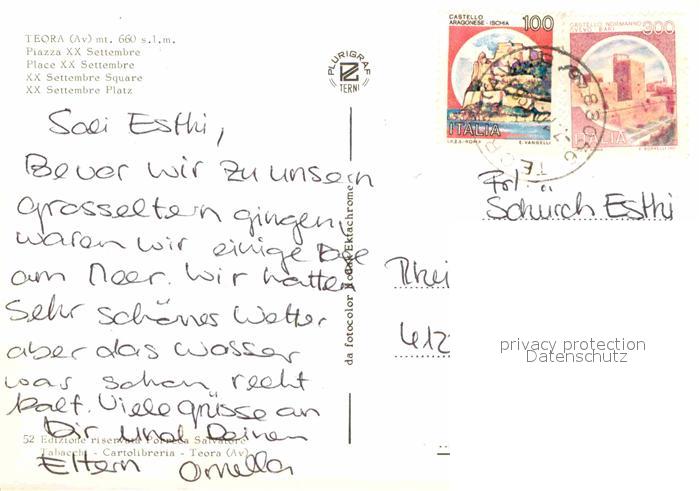 TEORA (Av) mt. 660 s.l.m.
Piazza XX Settembre
Place XX Settembre
XX Settembre Square
XX Settembre Platz
PLURIGRAF
TERNI
CASTELLO
ARAGONESE - ISCHIA
100
ITALIA
I.P.Z.S. - ROMA E. VANGELLI
CASTELLO NORMANNO
SVEVO BARI
300
ITALIA
Sali Esthi,
Bevor wir zu unsern
grosseltern gingen,
waren wir einige
am Meer. Wir hatten
Sehr schönes Wetter
aber das Wasser
war schon recht
kalt. Viele grüsse an
Dir und Deinen
Eltern Ornella
da fotocolor Kodak Ektachrome
52 Edizione riservata Salvatore
Tabacchi - Cartolibreria - Teora (Av)
Frl.
Schürch Esthi
Rhei
412
privacy protection
Datenschutz